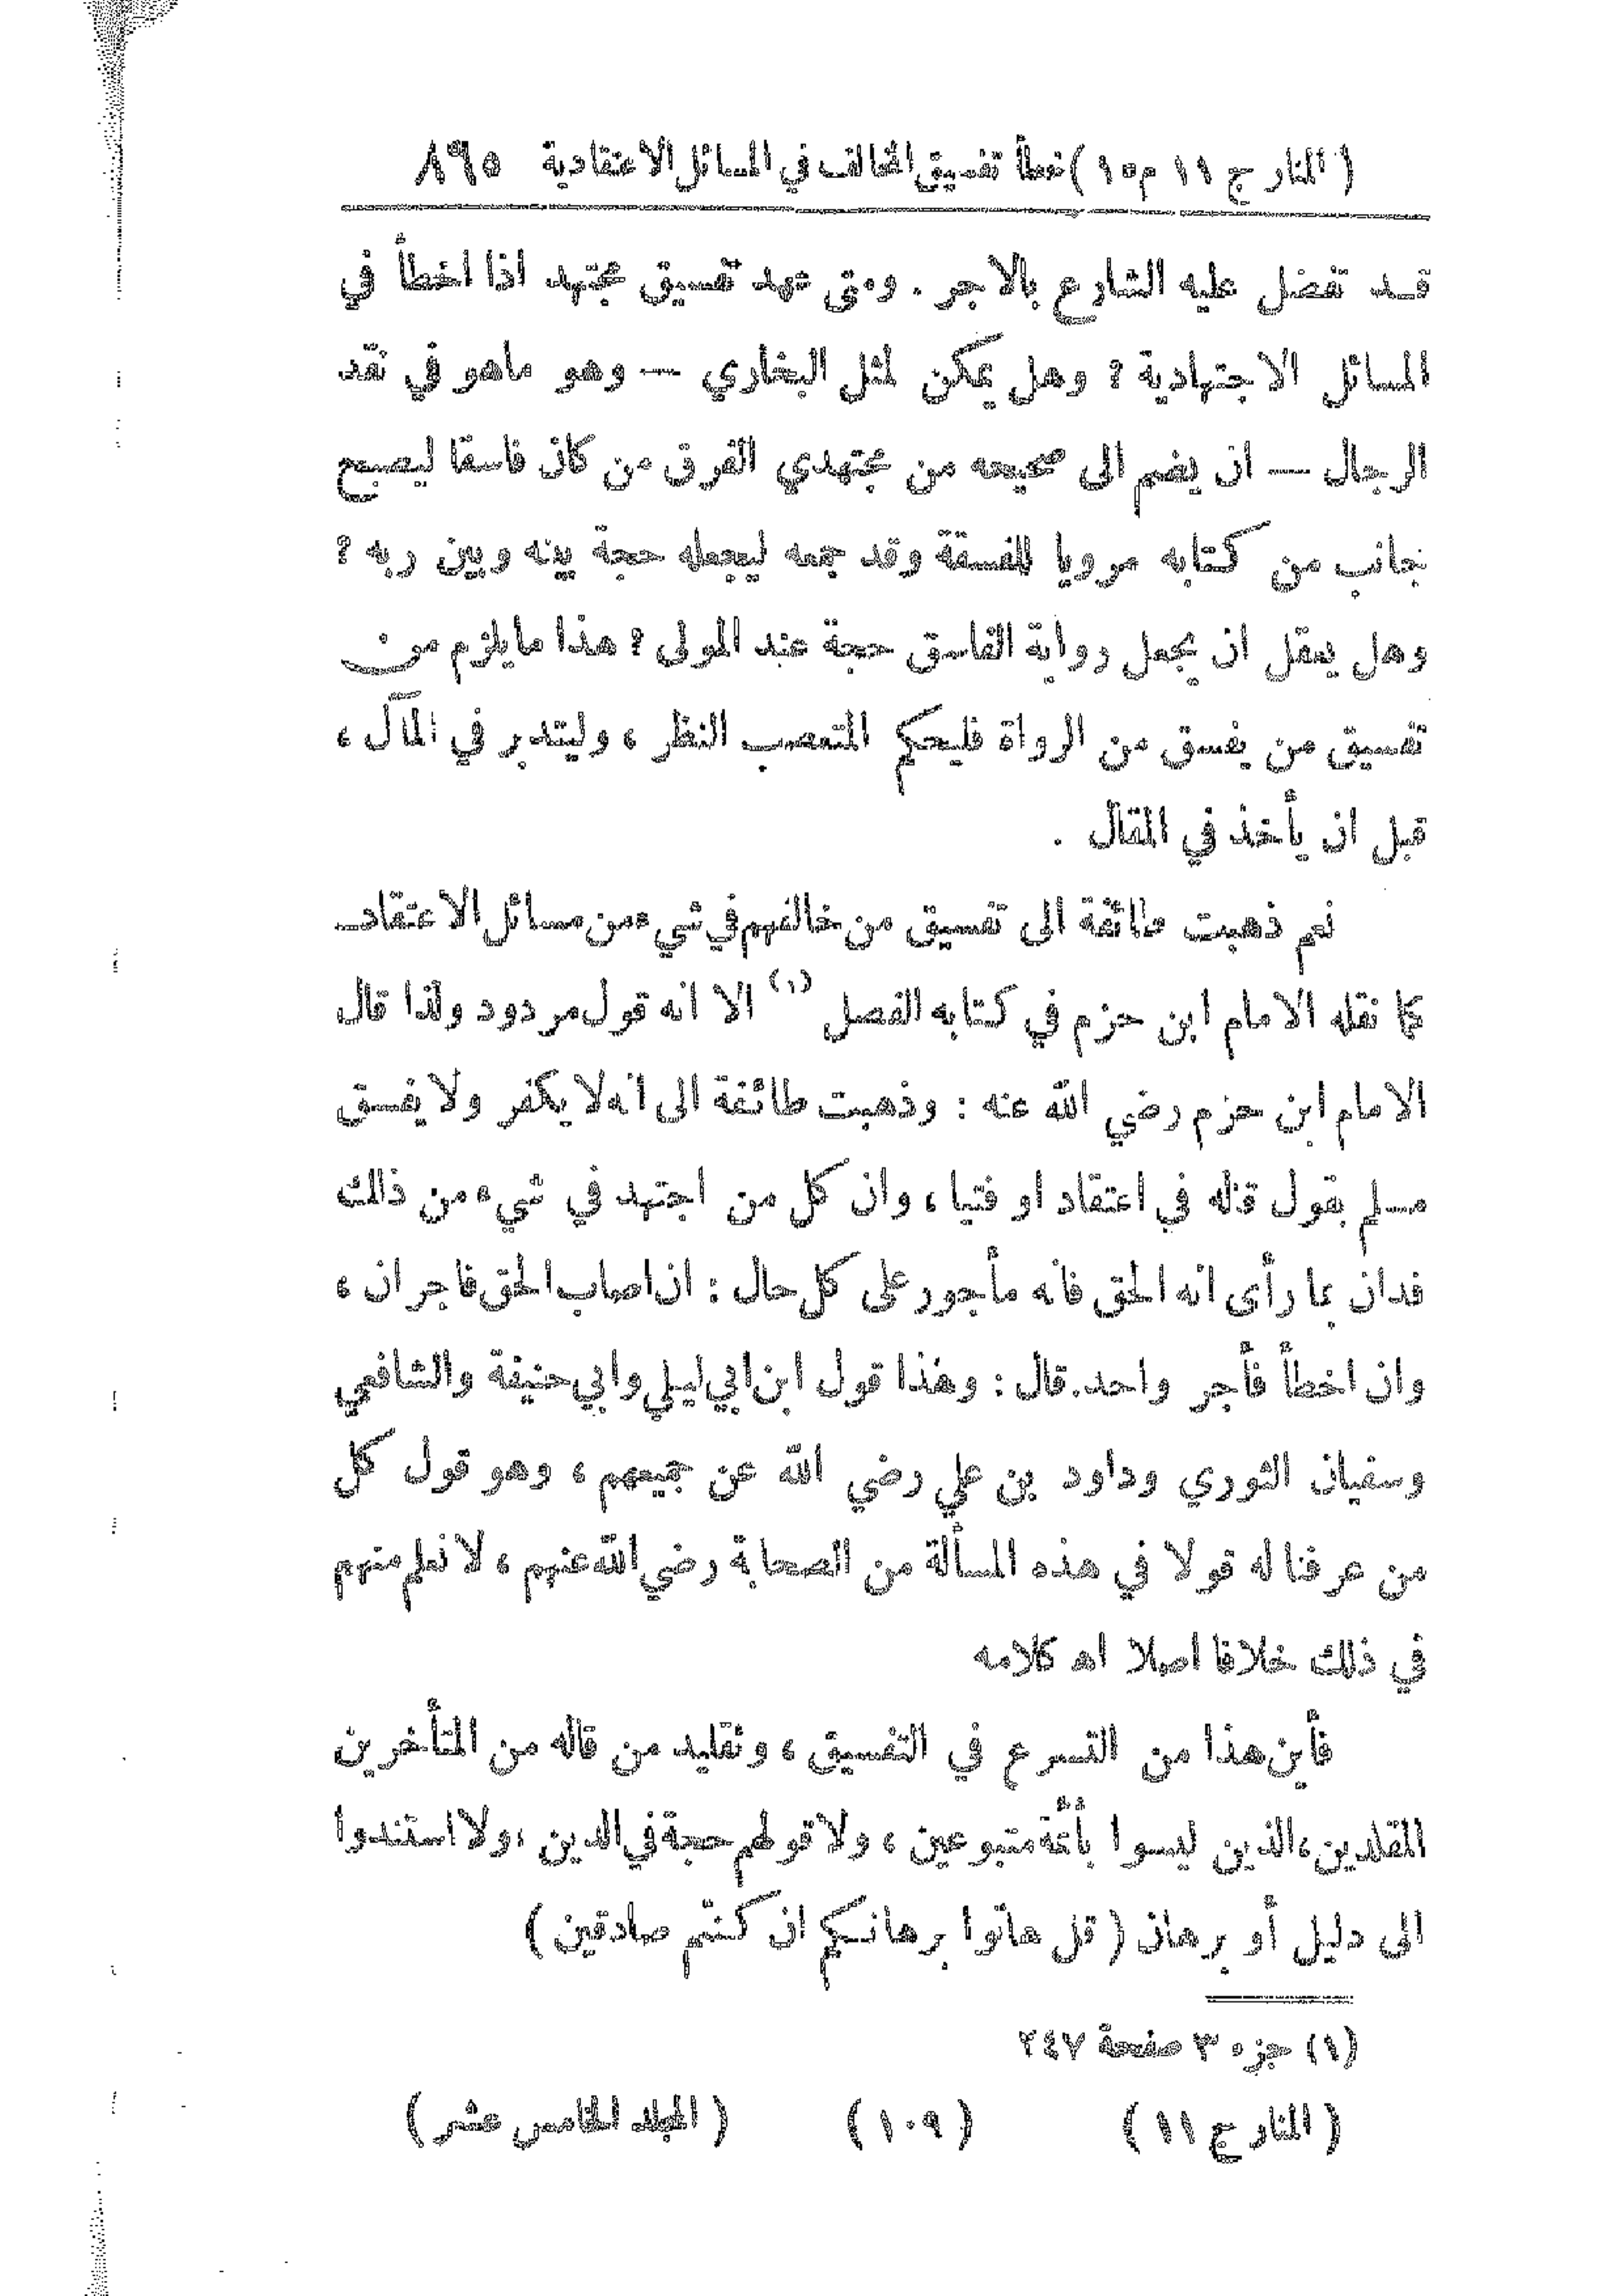 ( المنار ج ١١ م ١٥ ) خطأ تفسيق المخالف في المسائل الاعتقادية ٨٦٥
قد تفضل عليه الشارع بالاجر . ومتى عهد تفسيق مجتهد اذا اخطأ في
المسائل الاجتهادية ؟ وهل يمكن لمثل البخاري — وهو ماهو في نقد
الرجال — ان يضم الى صحيحه من مجتهدي الفرق من كان فاسقا ليصبح
جانب من كتابه مرويا للفسقة وقد جمعه ليجعله حجة بينه وبين ربه ؟
وهل يعقل ان يجعل رواية الفاسق حجة عند المولى ؟ هذا مايلزم من
تفسيق من يفسق من الرواة فليحكم المتعصب النظر ، وليتدبر في المآل ،
قبل ان يأخذ في المقال .
نعم ذهبت طائفة الى تفسيق من خالفهم في شيء من مسائل الاعتقاد
كما نقله الامام ابن حزم في كتابه الفصل (١) الا انه قول مردود ولذا قال
الامام ابن حزم رضي الله عنه : وذهبت طائفة الى انه لا يكفر ولا يفسق
مسلم بقول قاله في اعتقاد او فتيا ، وان كل من اجتهد في شيء من ذلك
فدان بما رأى انه الحق فانه مأجور على كل حال : ان اصاب الحق فاجران ،
وان اخطأ فأجر واحد . قال : وهذا قول ابن ابي ليلى وابي حنيفة والشافعي
وسفيان الثوري وداود بن علي رضي الله عن جميعهم ، وهو قول كل
من عرفنا له قولا في هذه المسألة من الصحابة رضي الله عنهم ، لا نعلم منهم
في ذلك خلافا اصلا اه كلامه
فأين هذا من التسرع في التفسيق ، وتقليد من قاله من المتأخرين
المقلدين ، الذين ليسوا بأئمة متبوعين ، ولا قولهم حجة في الدين ، ولا استندوا
الى دليل أو برهان ( قل هاتوا برهانكم ان كنتم صادقين )
(١) جزء ٣ صفحة ٢٤٧
( المنار ج ١١ ) ( ١٠٩ ) ( المجلد الخامس عشر )